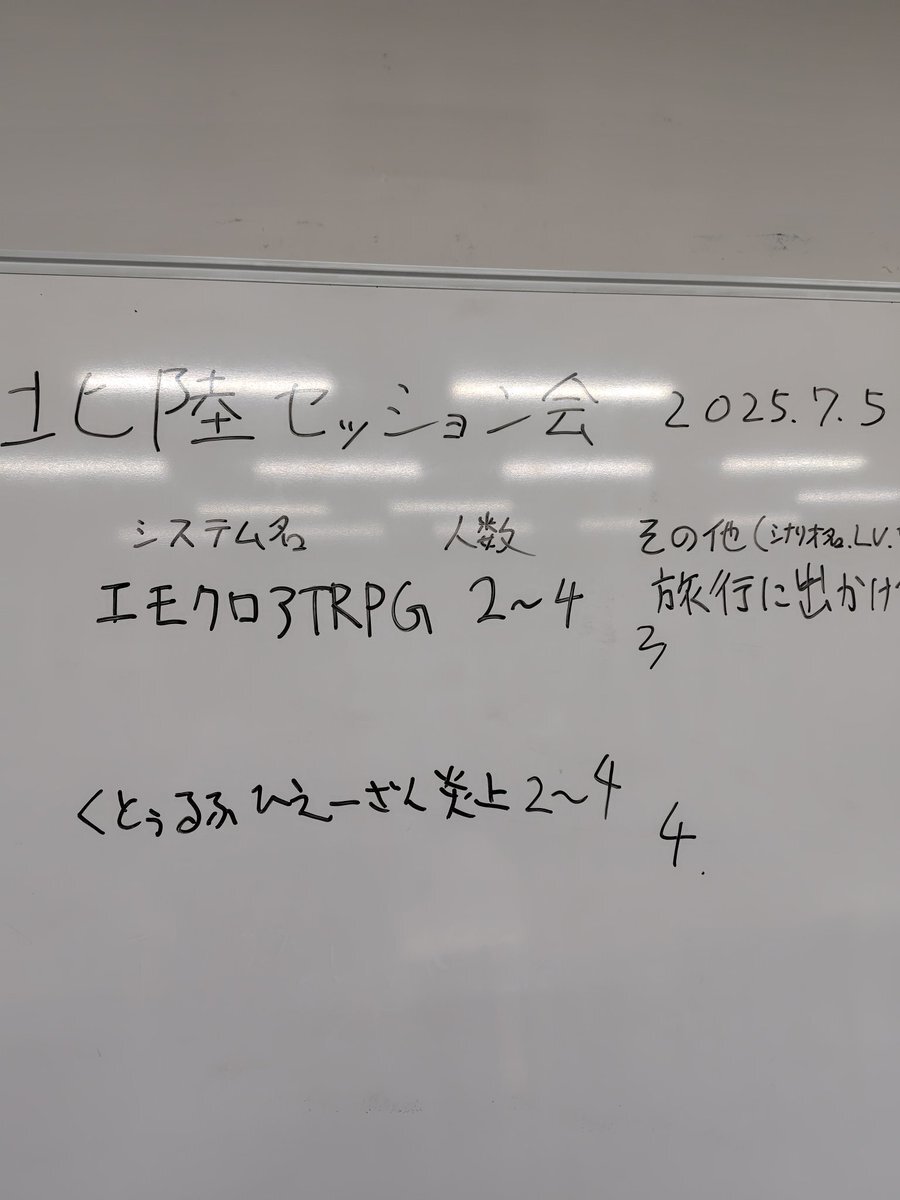 北陸セッション会 2025.7.5
システム名 人数 その他(シナリオ名.LV.
エモクロアTRPG 2~4 旅行に出かけ
3
くとぅるふ ひえーざん炎上 2~4
4.